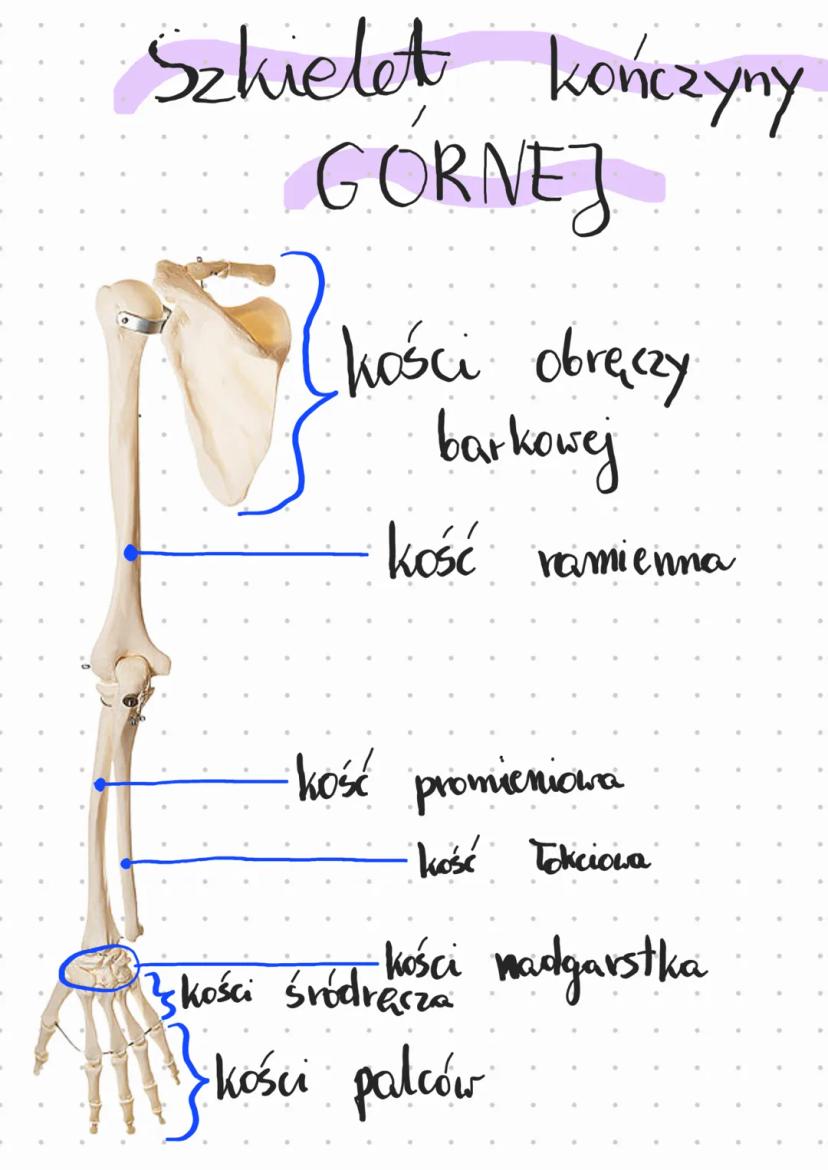 Szkielet kończyny
GÓRNEJ
kości obręczy
barkowej
kość ramienna
kość promieniowa
kość łokciowa
kości nadgarstka
kości śródręcza
kości palców